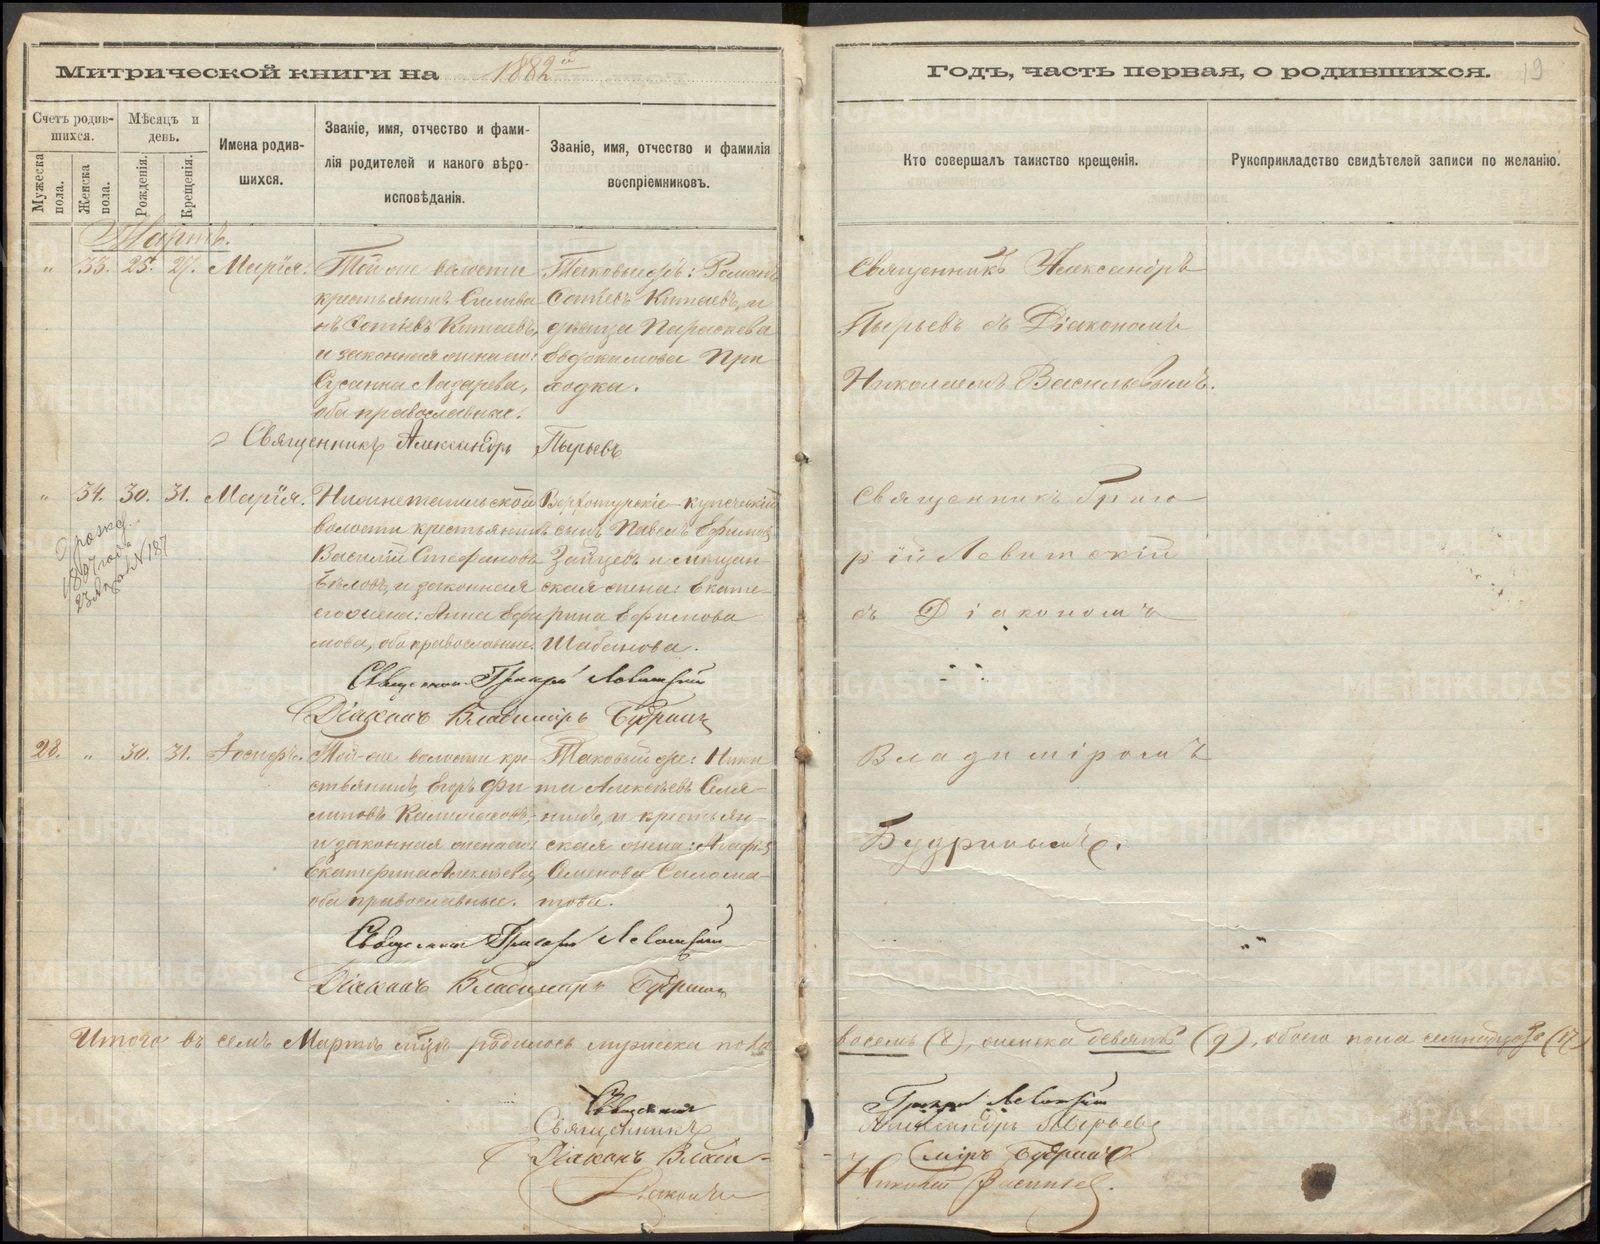 Митрической книги на 1882й
Годъ, часть первая, о родившихся. 19
Счетъ родившихся.
Мужеска пола.
Женска пола.
Мѣсяцъ и день.
Рожденія.
Крещенія.
Имена родившихся.
Званіе, имя, отчество и фамилія родителей и какого вѣроисповѣданія.
Званіе, имя, отчество и фамилія воспріемниковъ.
Кто совершалъ таинство крещенія.
Рукоприкладство свидѣтелей записи по желанію.
Мартъ.
„ 33. 25. 27. Марія.
Той же волости
крестьянинъ Силива
нъ Сотѣевъ Китаевъ,
и законная жена его:
Сусанна Лазарева,
оба православные.
Таковый же: Романъ
Сотѣевъ Китаевъ, и
дѣвица Параскева
Евдокимова При
ходка.
Священникъ Александръ
Пырьевъ съ Діакономъ
Николаемъ Васильевымъ.
Священникъ Александръ Пырьевъ
„ 34. 30. 31. Марія.
1897 года
№ 187
Нижнетагильской
волости крестьянинъ
Василій Стефановъ
Бѣловъ, и законная
его жена: Анна Ефи
мова, оба православные.
Верхотурскіе купеческій
сынъ Павелъ Ефимовъ
Зайцевъ и мѣщан
ская жена: Екате-
рина Ефимова
Шабанова.
Священникъ Григо
рій Левитскій
съ Діакономъ
Владиміромъ
Будринымъ.
Священникъ Григорій Левитскій
Діаконъ Владиміръ Будринъ
28. „ 30. 31. Іосифъ.
Той-же волости кре
стьянинъ Егоръ Фи
липовъ
и законная жена его:
Екатерина Алексѣева,
оба православные.
Таковый же: Ники
та Алексѣевъ Селя-
нинъ, и крестьян-
ская жена: Агафія
Семенова Солома-
това.
Священникъ Григорій Левитскій
Діаконъ Владиміръ Будринъ
Итого въ семъ Мартѣ мцѣ родилось мужеска пола восемь (8), женска девять (9), обоего пола семнадцать (17)
Священникъ Григорій Левитскій
Священникъ Александръ Пырьевъ
Діаконъ Влади- міръ Будринъ
Діаконъ Николай Васильевъ.
METRIKI.GASO-URAL.RU